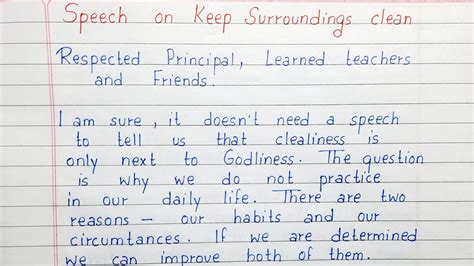 Speech on Keep Surroundings clean
Respected Principal, Learned teachers
and Friends.
I am sure, it doesn't need a speech
to tell us that clealiness is
only next to Godliness. The question
is why we do not practice
in our daily life. There are two
reasons – our habits and our
circumtances. If we are determined
we can improve both of them.